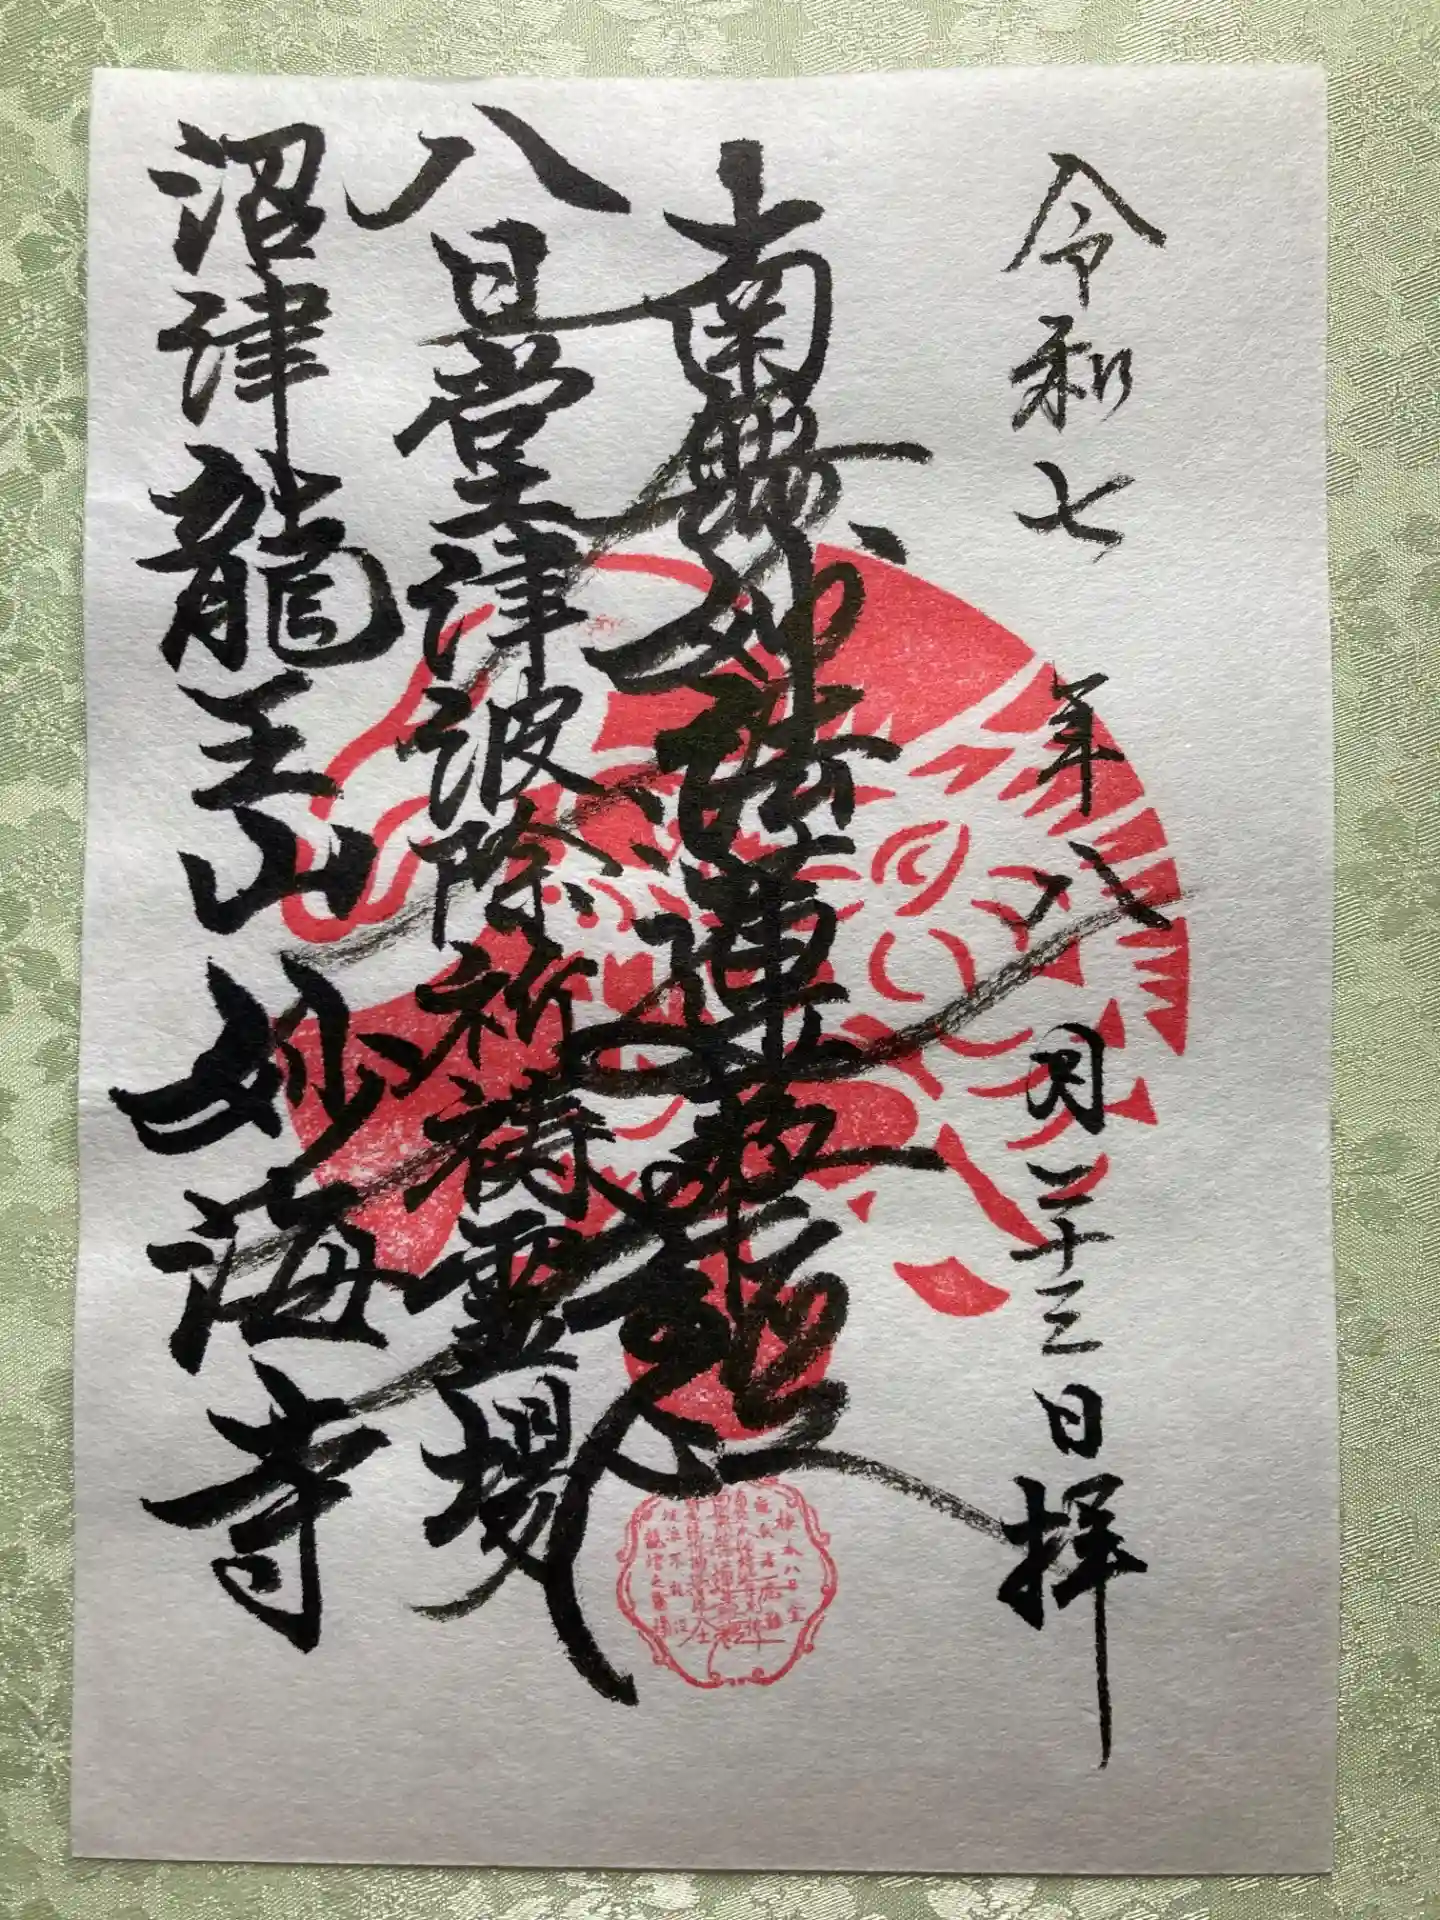 令和七年八月二十三日拝
南無妙法蓮華経
八日堂津波除祈祷霊場
沼津龍王山妙海寺